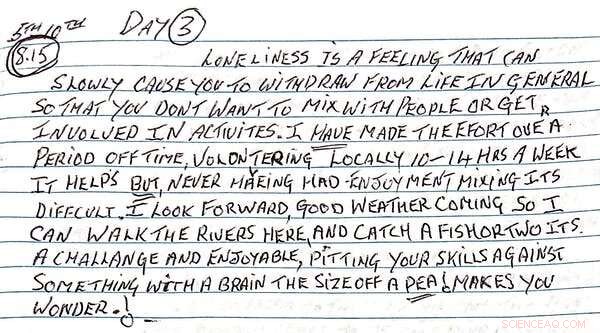 5TH 10TH DAY 3
8.15 LONELINESS IS A FEELING THAT CAN
SLOWLY CAUSE YOU TO WITHDRAW FROM LIFE IN GENERAL
SO THAT YOU DONT WANT TO MIX WITH PEOPLE OR GET
INVOLVED IN ACTIVITES. I HAVE MADE THE EFORT OVER A
PERIOD OFF TIME, VOLONTERING LOCALLY 10-14 HRS A WEEK
IT HELP'S BUT, NEVER HAVEING HAD ENJOYMENT MIXING ITS
DIFFCULT. I LOOK FORWARD, GOOD WEATHER COMING SO I
CAN WALK THE RIVERS HERE, AND CATCH A FISH OR TWO ITS.
A CHALLANGE AND ENJOYABLE, PITTING YOUR SKILLS AGAINST
SOMETHING WITH A BRAIN THE SIZE OFF A PEA! MAKES YOU
WONDER.!
SCIENCEAQ.COM